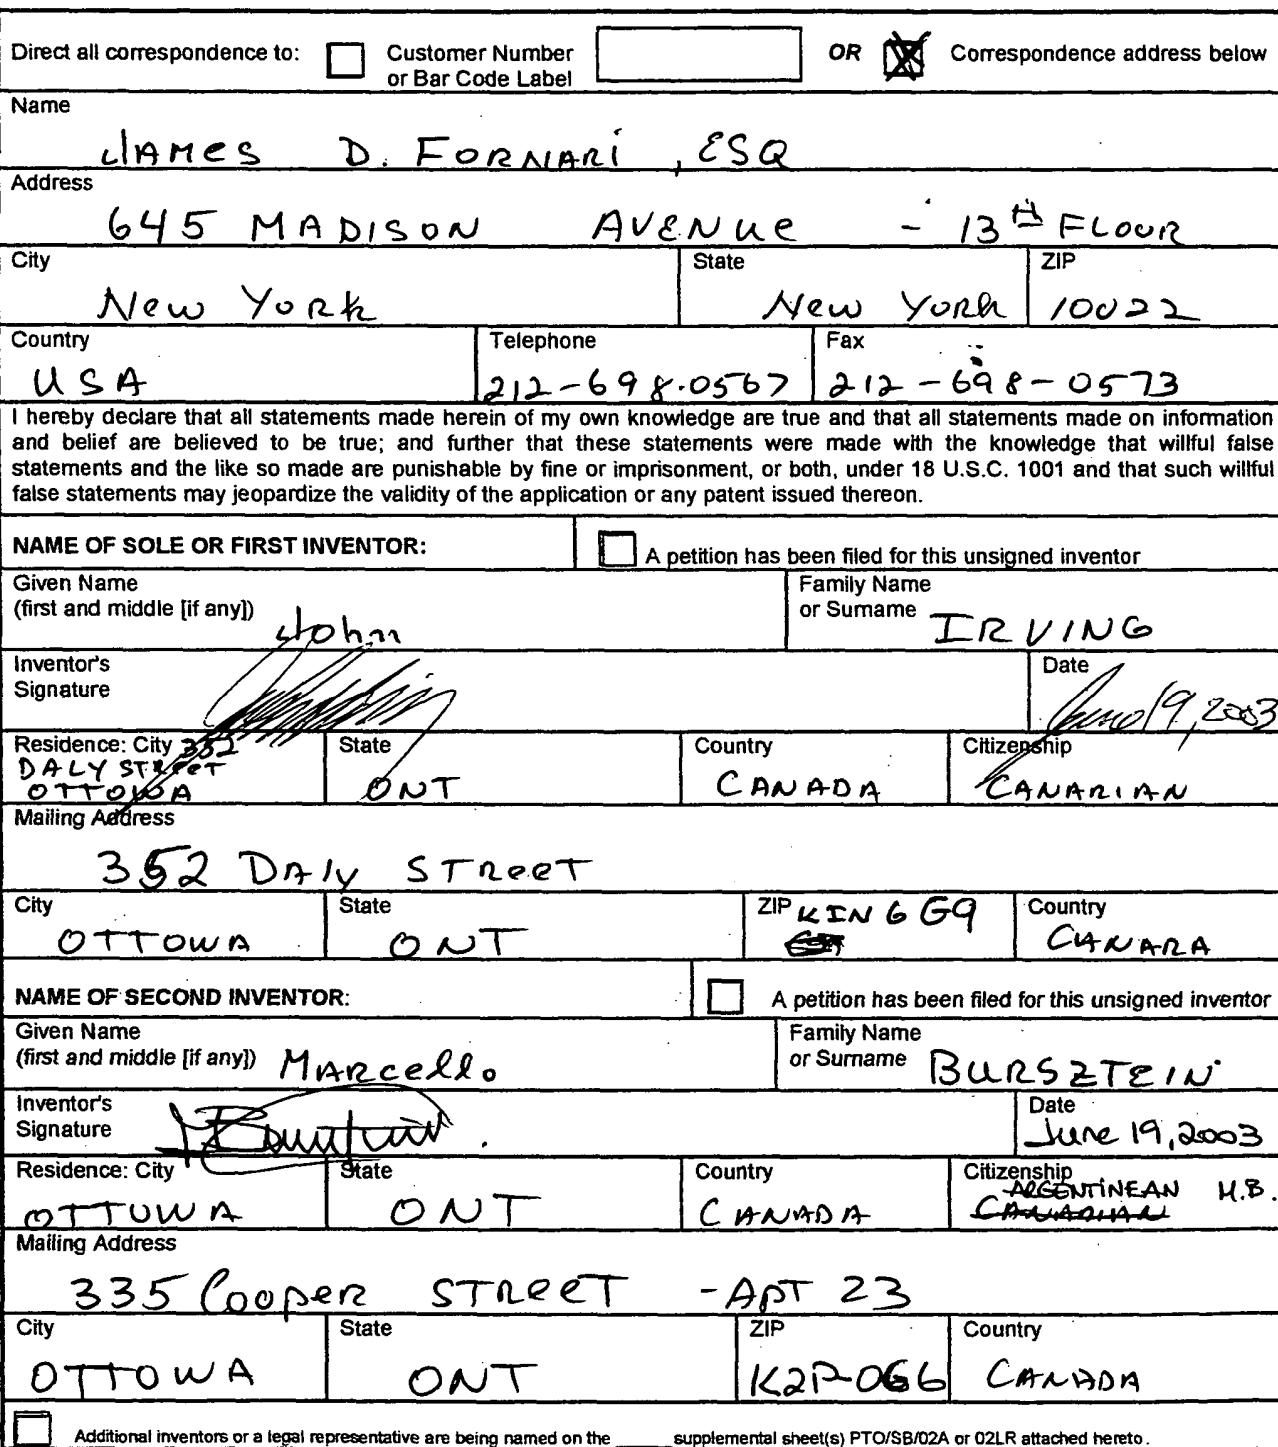 Direct all correspondence to: Customer Number or Bar Code Label OR Correspondence address below
Name
JAMES D. FORNARI, ESQ
Address
645 MADISON AVENUE - 13TH FLOUR
City State ZIP
New York New York 10022
Country Telephone Fax
USA 212-698-0567 212-698-0573
I hereby declare that all statements made herein of my own knowledge are true and that all statements made on information
and belief are believed to be true; and further that these statements were made with the knowledge that willful false
statements and the like so made are punishable by fine or imprisonment, or both, under 18 U.S.C. 1001 and that such willful
false statements may jeopardize the validity of the application or any patent issued thereon.
NAME OF SOLE OR FIRST INVENTOR: A petition has been filed for this unsigned inventor
Given Name
(first and middle [if any]) John
Family Name
or Surname IRVING
Inventor's
Signature
Date
June 19, 2003
Residence: City 352
DALY STREET
OTTOWA
State
ONT
Country
CANADA
Citizenship
CANARIAN
Mailing Address
352 DAly STReeT
City State ZIP KIN 6G9 Country
OTTOWA ONT CANARA
NAME OF SECOND INVENTOR: A petition has been filed for this unsigned inventor
Given Name
(first and middle [if any]) MARcello
Family Name
or Surname BURSZTEIN
Inventor's
Signature
Date
June 19, 2003
Residence: City State Country Citizenship
ARGENTINEAN M.B.
OTTUWA ONT CANADA CANADIAN
Mailing Address
335 Cooper STReeT - APT 23
City State ZIP Country
OTTOWA ONT K2P-0G6 CANADA
Additional inventors or a legal representative are being named on the _____ supplemental sheet(s) PTO/SB/02A or 02LR attached hereto.